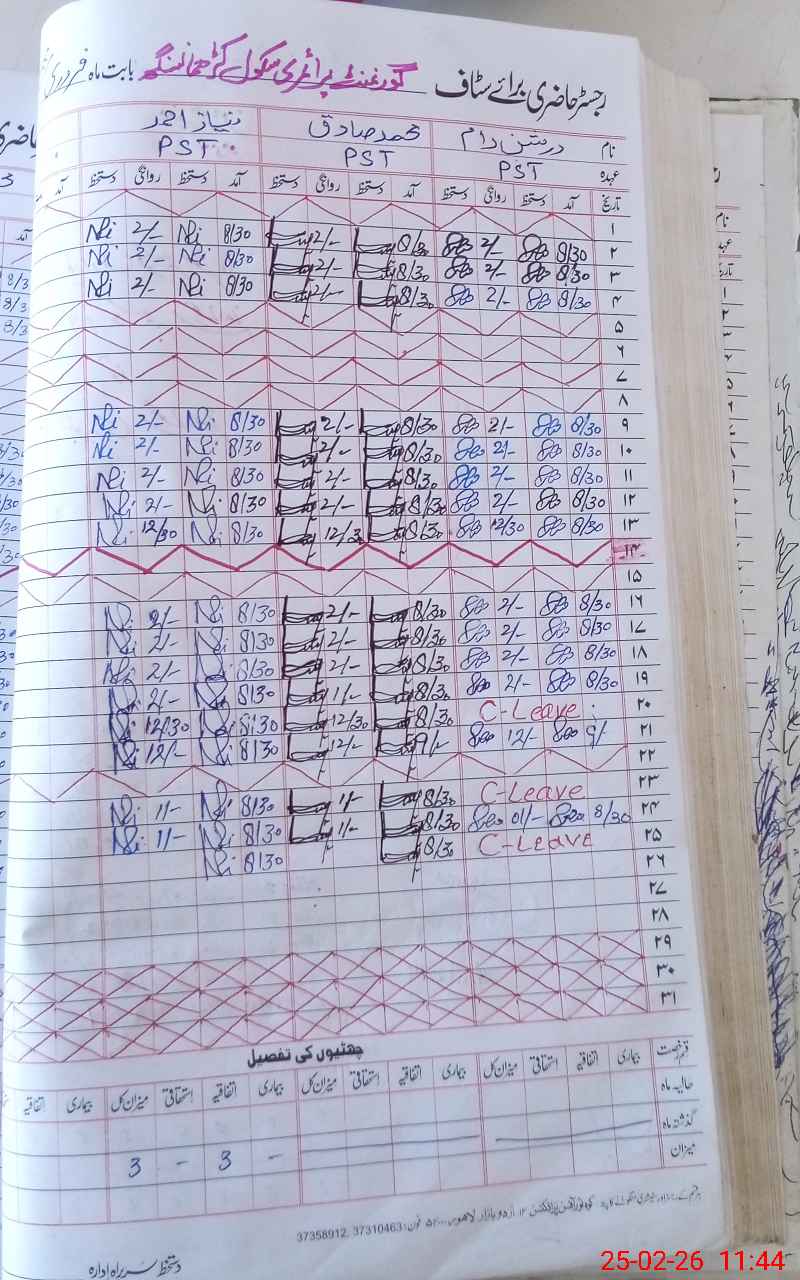 رجسٹر حاضری برائے سٹاف گورنمنٹ پرائمری سکول بابت ماہ فروری
نام درشن رام محمد صادق نیاز احمد
عہدہ PST PST PST
تاریخ آمد دستخط روانگی دستخط آمد دستخط روانگی دستخط آمد دستخط روانگی دستخط آمد
۱
۲ 8/30 2/- 8/30 2/- 8/30 Ni 2/- Ni
۳ 8/30 2/- 8/30 2/- 8/30 Ni 2/- Ni
۴ 8/30 2/- 8/30 2/- 8/30 Ni 2/- Ni
۵
۶
۷
۸
۹ 8/30 2/- 8/30 2/- 8/30 Ni 2/- Ni
۱۰ 8/30 2/- 8/30 2/- 8/30 Ni 2/- Ni
۱۱ 8/30 2/- 8/30 2/- 8/30 Ni 2/- Ni
۱۲ 8/30 2/- 8/30 2/- 8/30 Ni 2/- Ni
۱۳ 8/30 12/30 8/30 12/30 8/30 Ni 12/30 Ni
۱۴
۱۵
۱۶ 8/30 2/- 8/30 2/- 8/30 Ni 2/- Ni
۱۷ 8/30 2/- 8/30 2/- 8/30 Ni 2/- Ni
۱۸ 8/30 2/- 8/30 2/- 8/30 Ni 2/- Ni
۱۹ 8/30 2/- 8/30 1/- 8/30 Ni 2/- Ni
۲۰ C-Leave 8/30 12/30 8/30 Ni 12/30 Ni
۲۱ 9/- 12/- 9/- 12/- 8/30 Ni 12/- Ni
۲۲
۲۳ C-Leave 8/30 1/- 8/30 Ni 1/- Ni
۲۴ 8/30 01/- 8/30 1/- 8/30 Ni 1/- Ni
۲۵ C-Leave 8/30 8/30 Ni
۲۶
۲۷
۲۸
۲۹
۳۰
۳۱
چھٹیوں کی تفصیل
قسم رخصت بیماری اتفاقیہ استحقاقی میزان کل بیماری اتفاقیہ استحقاقی میزان کل بیماری اتفاقیہ استحقاقی میزان کل بیماری اتفاقیہ
حالیہ ماہ
گذشتہ ماہ
میزان - 3 - 3
اردو بازار لاہور فون: 37310463, 37358912
دستخط سربراہ ادارہ
25-02-26 11:44